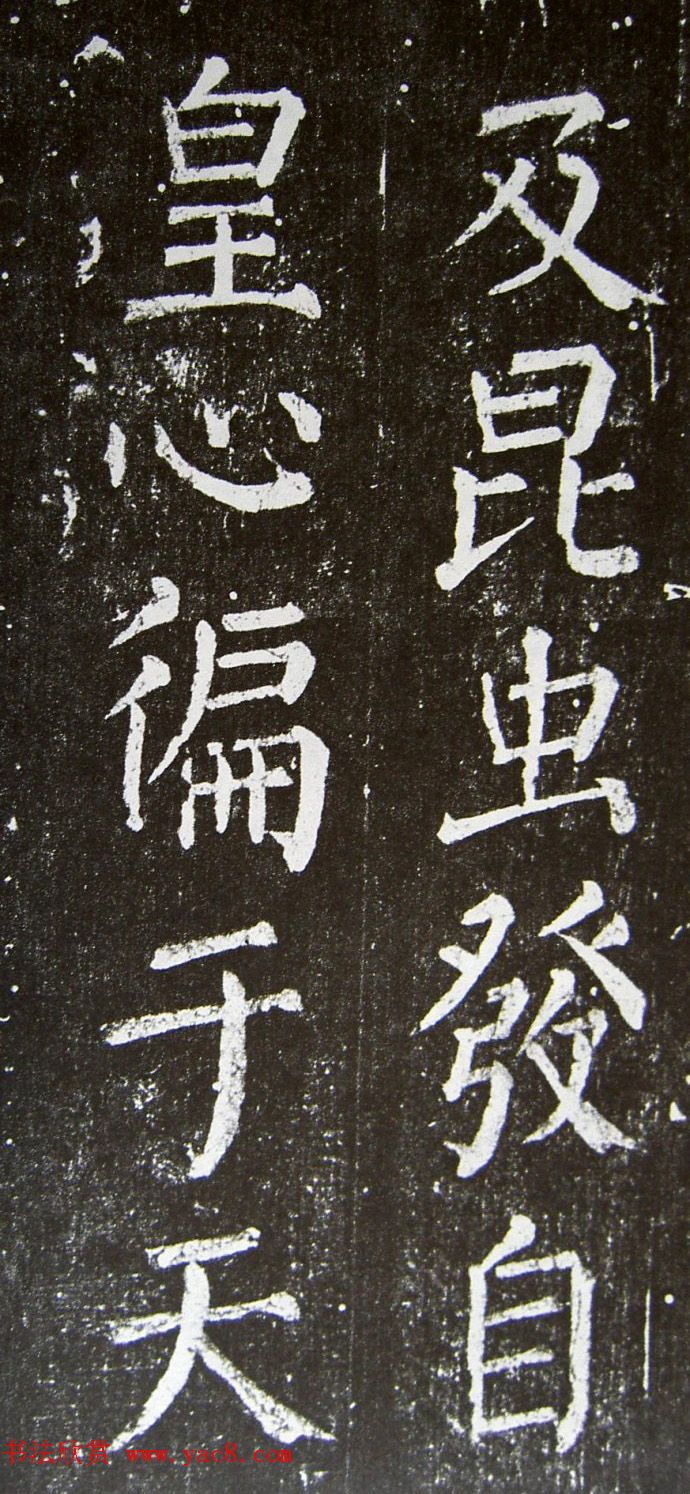 及昆虫發自
皇心徧于天
书法欣赏 www.yac8.com